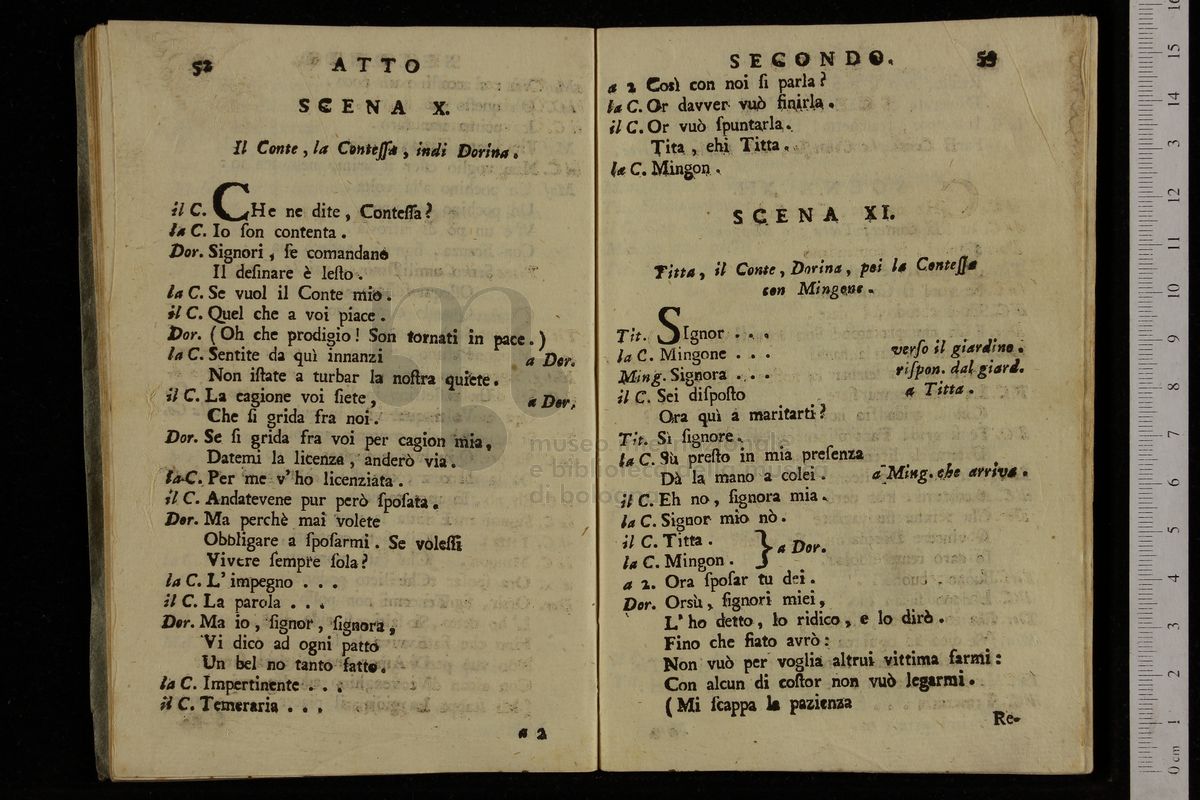 52 ATTO
SCENA X.
Il Conte, la Contessa, indi Dorina.
il C. CHe ne dite, Contessa?
la C. Io son contenta.
Dor. Signori, se comandano
Il desinare è lesto.
la C. Se vuol il Conte mio.
il C. Quel che a voi piace.
Dor. (Oh che prodigio! Son tornati in pace.)
la C. Sentite da quì innanzi a Dor.
Non istate a turbar la nostra quiete.
il C. La cagione voi siete, a Dor.
Che si grida fra noi.
Dor. Se si grida fra voi per cagion mia,
Datemi la licenza, anderò via.
la C. Per me v'ho licenziata.
il C. Andatevene pur però sposata.
Dor. Ma perchè mai volete
Obbligare a sposarmi. Se volessi
Vivere sempre sola?
la C. L'impegno . . .
il C. La parola . . .
Dor. Ma io, signor, signora,
Vi dico ad ogni patto
Un bel no tanto fatto.
la C. Impertinente . . .
il C. Temeraria . . .
a 2
SECONDO. 53
a 2 Così con noi si parla?
la C. Or davver vuò finirla.
il C. Or vuò spuntarla.
Tita, ehi Titta.
la C. Mingon.
SCENA XI.
Titta, il Conte, Dorina, poi la Contessa
con Mingone.
Tit. SIgnor . . .
la C. Mingone . . . verso il giardino.
Ming. Signora . . . rispon. dal giard.
il C. Sei disposto a Titta.
Ora quì a maritarti?
Tit. Sì signore.
la C. Sù presto in mia presenza
Dà la mano a colei. a Ming. che arriva.
il C. Eh no, signora mia.
la C. Signor mio nò.
il C. Titta. } a Dor.
la C. Mingon.
a 2. Ora sposar tu dei.
Dor. Orsù, signori miei,
L'ho detto, lo ridico, e lo dirò.
Fino che fiato avrò:
Non vuò per voglia altrui vittima farmi:
Con alcun di costor non vuò legarmi.
(Mi scappa la pazienza
Re-
museo internazionale
e biblioteca della musica
di bologna
0 cm 1 2 3 4 5 6 7 8 9 10 11 12 13 14 15 16